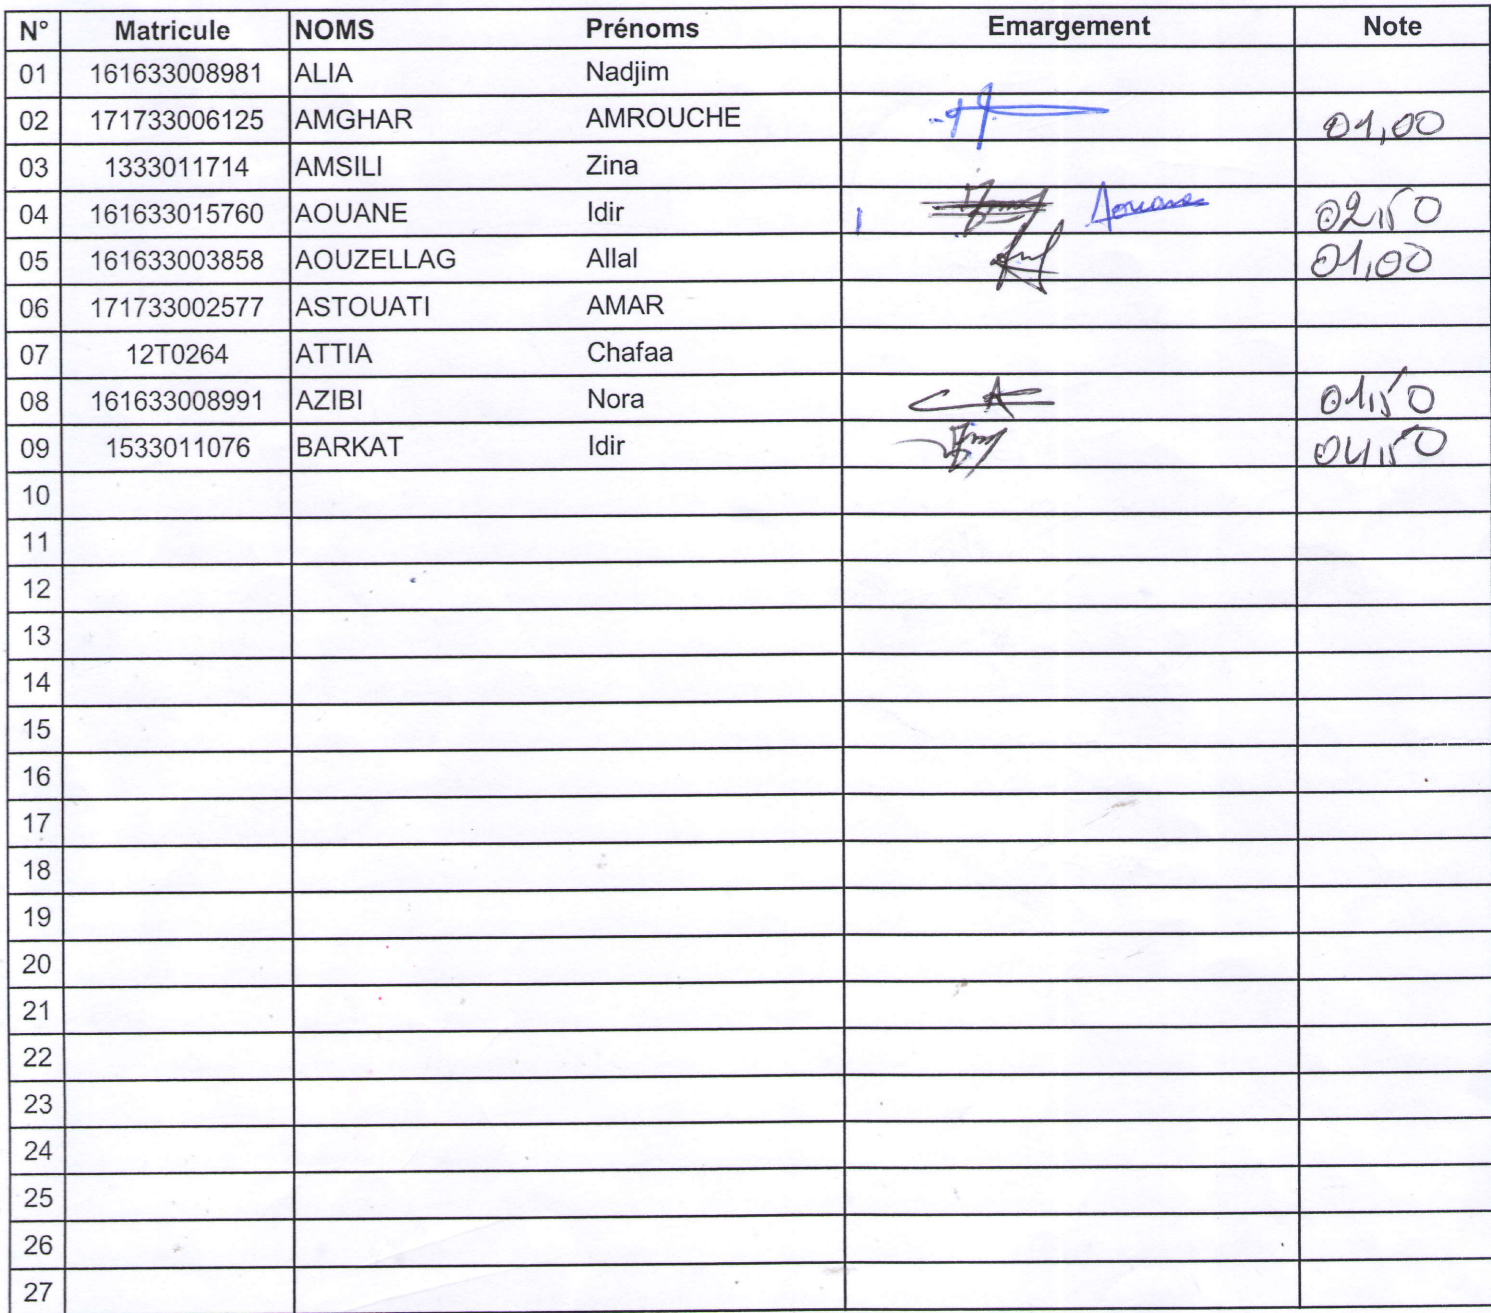 N° Matricule NOMS Prénoms Emargement Note
01 161633008981 ALIA Nadjim
02 171733006125 AMGHAR AMROUCHE 01,00
03 1333011714 AMSILI Zina
04 161633015760 AOUANE Idir Aouane 02,50
05 161633003858 AOUZELLAG Allal 01,00
06 171733002577 ASTOUATI AMAR
07 12T0264 ATTIA Chafaa
08 161633008991 AZIBI Nora 01,50
09 1533011076 BARKAT Idir 04,50
10
11
12
13
14
15
16
17
18
19
20
21
22
23
24
25
26
27